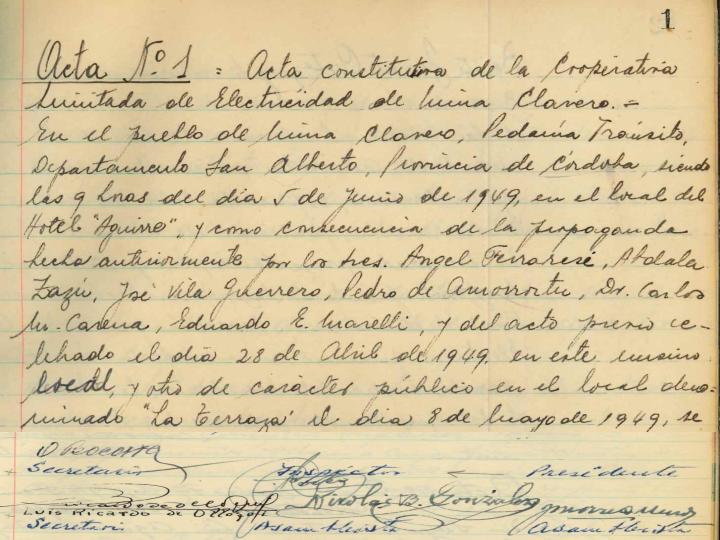 1
Acta Nº 1 = Acta constitutiva de la Cooperativa
Limitada de Electricidad de Mina Clavero. =
En el pueblo de Mina Clavero, Pedanía Tránsito,
Departamento San Alberto, Provincia de Córdoba, siendo
las 9 horas del día 5 de Junio de 1949, en el local del
Hotel "Aguirre", y como consecuencia de la propaganda
hecha anteriormente por los Sres. Angel Ferrarese, Abdala
Zazú, José Vila Guerrero, Pedro de Amorrortu, Dr. Carlos
M. Carena, Eduardo E. Marelli, y del acto previo ce-
lebrado el día 28 de Abril de 1949. en este mismo
local, y otro de carácter público en el local deno-
minado "La Terraza" el dia 8 de Mayo de 1949, se
Secretario Presidente
Nicolás B. González
LUIS RICARDO DE
Secretario Asambleista Asambleista